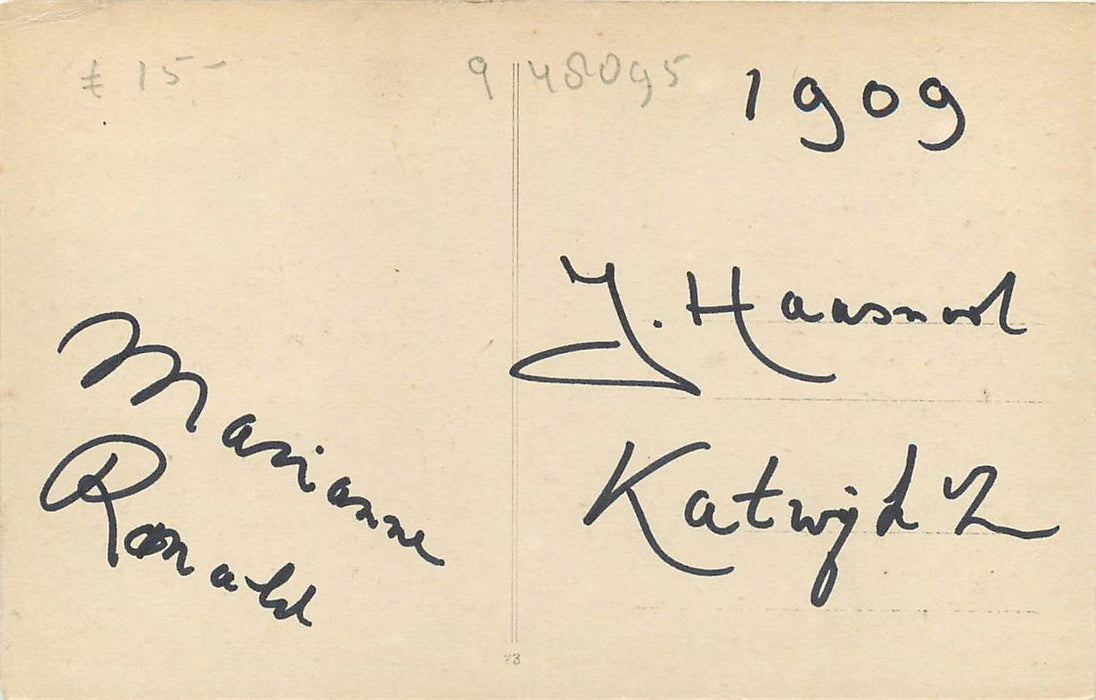 £ 15-
9 48095
1909
Marianne
Ronald
J. Haasnoot
Katwijk Z